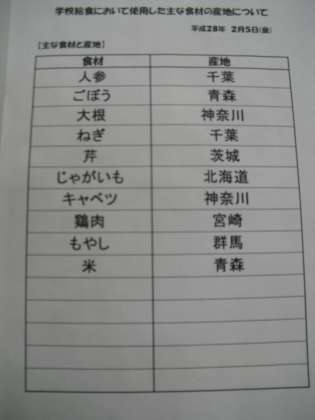 学校給食において使用した主な食材の産地について
平成28年 2月5日(金)
[主な食材と産地]
食材 産地
人参 千葉
ごぼう 青森
大根 神奈川
ねぎ 千葉
芹 茨城
じゃがいも 北海道
キャベツ 神奈川
鶏肉 宮崎
もやし 群馬
米 青森